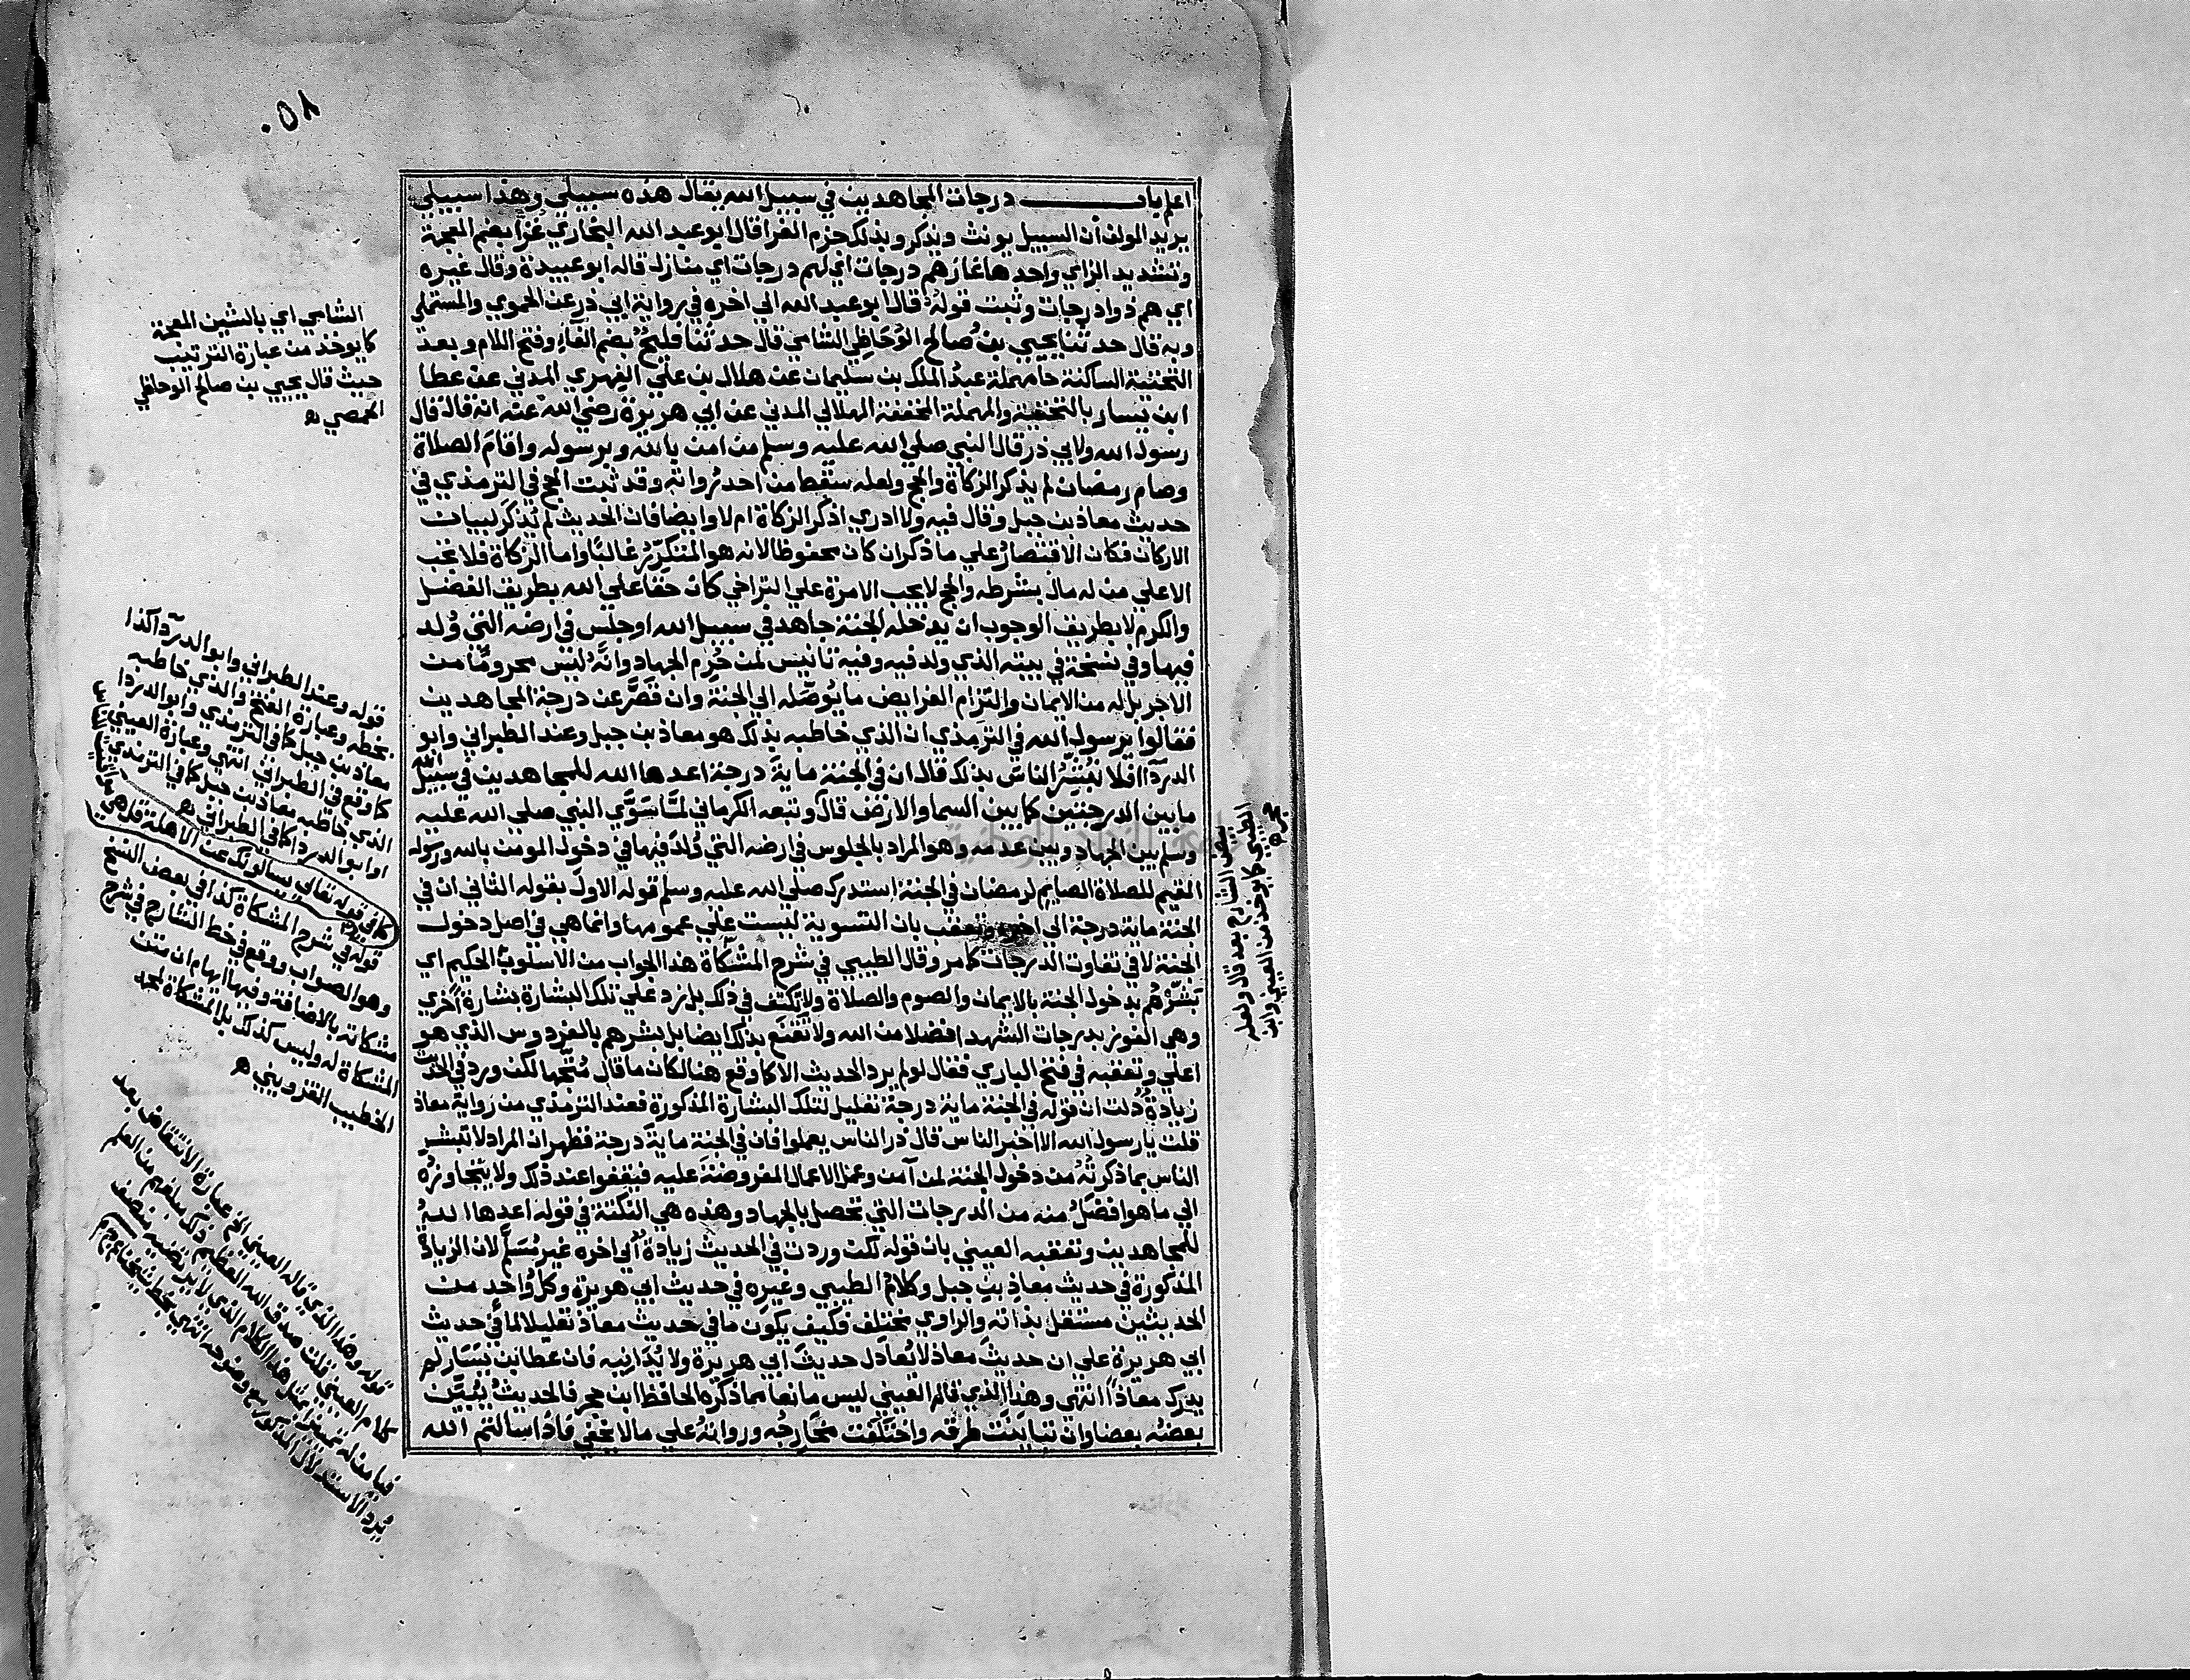 ٠٥٨
اعلم باب درجات المجاهدين في سبيل الله يقال هذه سبيلي وهذا سبيلي
يريد المولف أن السبيل يونث ويذكر وبذلك جزم الفرا قال ابو عبد الله البخاري غُزًّا بضم المعجمة
وتشديد الزاي واحدها غاز هم درجات اي لهم درجات اي منازل قاله ابو عبيدة وقال غيره
اي هم ذوا درجات وثبت قوله قال ابو عبد الله الي اخره في رواية ابي ذر عن الحموي والمستملي
وبه قال حدثنا يحيي بن صالح الوُحَاظِي الشامي قال حدثنا فليحٌ بضم الفاء وفتح اللام وبعد
التحتية الساكنة حا مهملة عبدُ الملك بن سليمان عن هلال بن علي الفِهري المدني عن عطا
ابن يَسار بالتحتية والمهملة المخففة الهلالي المدني عن ابي هريرة رضي الله عنه انه قال قال
رسول الله ولابي ذر قال النبي صلي الله عليه وسلم من امن بالله وبرسوله واقام الصلاة
وصام رمضان لم يذكر الزكاة والحج ولعله سقط من احد رُواته وقد ثبت الحج في الترمذي في
حديث معاذ بن جبل وقال فيه ولا ادري اذكر الزكاة ام لا وايضا فان الحديث لم يُذكَر لبيان
الاركان فكان الاقتصارُ علي ما ذكر ان كان محفوظا لانه هو المتكرّرُ غالبًا واما الزكاة فلا تجب
الا علي من له مال بشرطه والحج لا يجب الا مرة علي التراخي كان حقا علي الله بطريق الفضل
والكرم لا بطريق الوجوب ان يدخله الجنة جاهد في سبيل الله او جلس في ارضه التي وُلد
فيها وفي نسخة في بيته الذي ولد فيه وفيه تانيس لمن حُرِم الجهاد وانّه ليس محرومًا من
الاجر بل له من الايمان والتزام الفرايض ما يُوصّله الي الجنة وان قَصَّر عن درجة المجاهدين
فقالوا يرسول الله في الترمذي ان الذي خاطبه بذلك هو معاذ بن جبل وعند الطبراني وابو
الدردآ افلا نُبَشِّرُ الناسَ بذلك قال ان في الجنة ماية درجة اعدها الله للمجاهدين في سبيل الله
ما بين الدرجتين كما بين السما والارض قال وتبعه الكرماني لمّا سَوَّي النبي صلي الله عليه
وسلم بين الجهاد وبين عدمه وهو المراد بالجلوس في ارضه التي وُلدَ فيها في دخول المومن بالله ورسوله
المقيم للصلاة الصايم لرمضان في الجنة استدرك صلي الله عليه وسلم قوله الاولَ بقوله الثاني ان في
الجنة ماية درجة الي اخره وتعقب بان التسوية ليست علي عمومها وانما هي في اصل دخول
الجنة لا في تفاوت الدرجات كما مر وقال الطيبي في شرح المشكاة هذا الجواب من الاسلوب الحكيم اي
بَشّرهُم بدخول الجنة بالايمان والصوم والصلاة ولا تكتَفِ في ذلك بل زد علي تلك البشارة بشارة اُخري
وهي الفوز بدرجات الشهدا فضلا من الله ولا تَقنَع بذلك ايضا بل بشرهم بالفردوس الذي هو
اعلي وتعقبه في فتح الباري فقال لو لم يرد الحديث الا كما وقع هنا لكان ما قال مُتّجِها لكن ورد في الحديث
زيادة دُلت ان قوله في الجنة ماية درجة تعليل لتلك البشارة المذكورة فعند الترمذي من رواية معاذ
قلت يا رسول الله الا اخبر الناس قال ذر الناس يعملوا فان في الجنة مايةَ درجة فظهر ان المراد لا تبشر
الناس بما ذكرتُهُ من دخول الجنة لمن آمن وعمل الاعمال المفروضةَ عليه فيقفوا عند ذلك ولا يتجاوزهُ
الي ما هو افضَلُ منه من الدرجات التي تحصل بالجهاد وهذه هي النكتة في قوله اعدها اللهُ
للمجاهدين وتعقبه العيني بان قوله لكن وردت في الحديث زيادةٌ الي اخره غير مُسَلّم لان الزيادةَ
المذكورة في حديث معاذِ بنِ جبل وكلامُ الطيبي وغيرِه في حديث ابي هريرة وكلُ واحِد من
الحديثين مستقل بذاته والراوي مختلِف فكيف يكون ما في حديث معاذ تعليلا لما في حديث
ابي هريرة علي ان حديثَ معاذ لا يُعادل حديثَ ابي هريرة ولا يُدَانِيه فان عطا بن يَسَار لم
يدرك معاذًا انتهي وهذا الذي قاله العيني ليس مانعا مما ذكره الحافظ ابن حجر فالحديثُ يُبيّن
بعضُه بعضا وان تبايَنَت طرقه واختَلَفت مخارِجُه ورواتهُ علي ما لا يخفي فاذا سالتم الله
الشامي اي بالشين المعجمة
كما يوخذ من عبارة الترتيب
حيث قال يحيي بن صالح الوحاظي
الحمصي اه
قوله وعند الطبراني وابو الدردآ كذا
بخطه وعبارة الفتح والذي خاطبه
معاذ بن جبل كما في الترمذي وابو الدردا
كما وقع في الطبراني انتهي وعبارة العيني
الذي خاطبه معاذ بن جبل كما في الترمذي
او ابو الدردا كما في الطبراني اه
كما في قوله تعالي يسالونك عن الاهلة قل هي مواقيت للناس
قوله في شرح المشكاة كذا في بعض النسخ
وهو الصواب ووقع في خط الشارح في شرح
مشكاته بالاضافة وفيها ايهام ان متن
المشكاة له وليس كذلك بل المشكاة لمحمد
الخطيب القزويني اه
قوله وهذا الذي قاله العيني الخ عبارة الانتقاض بعد
كلام العيني قلت صدق الله العظيم ذلك مبلغهم من العلم